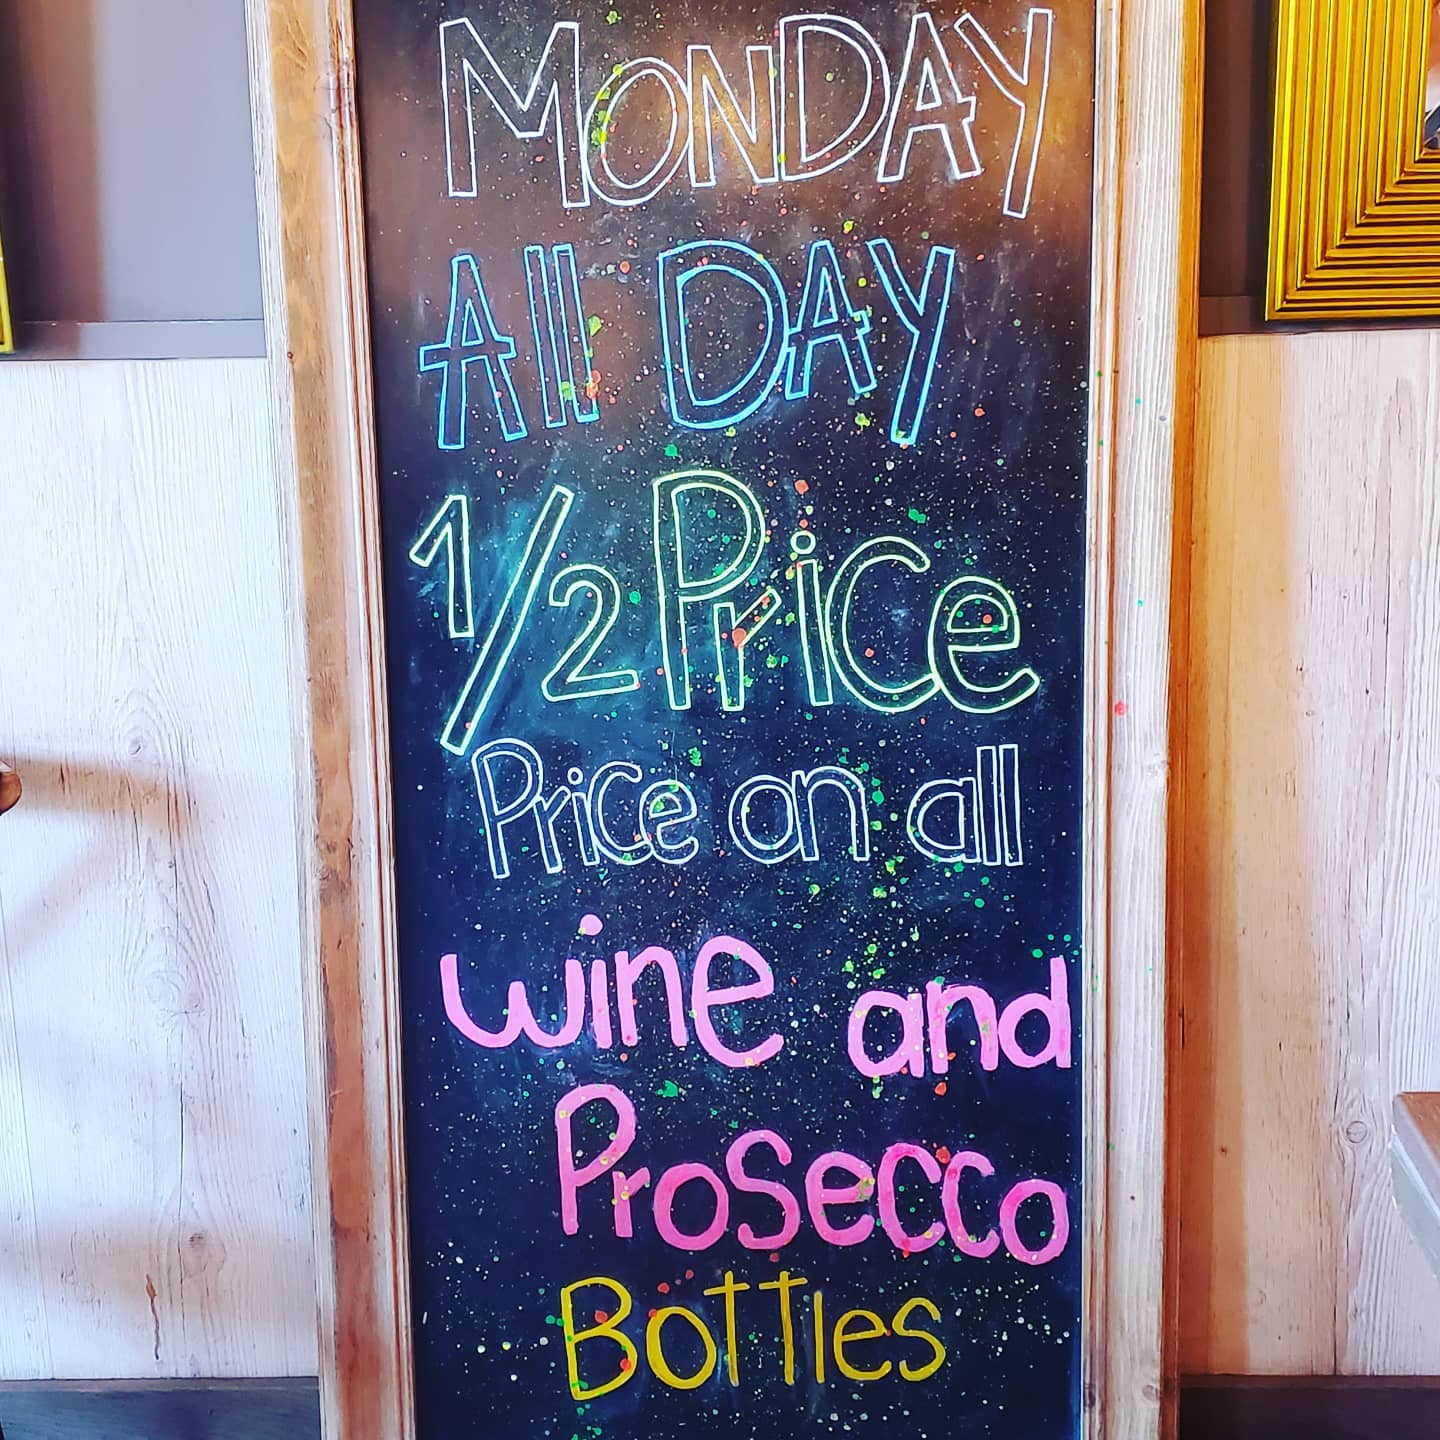 MONDAY
All DAY
1/2 Price
Price on all
wine and
Prosecco
BoTTles